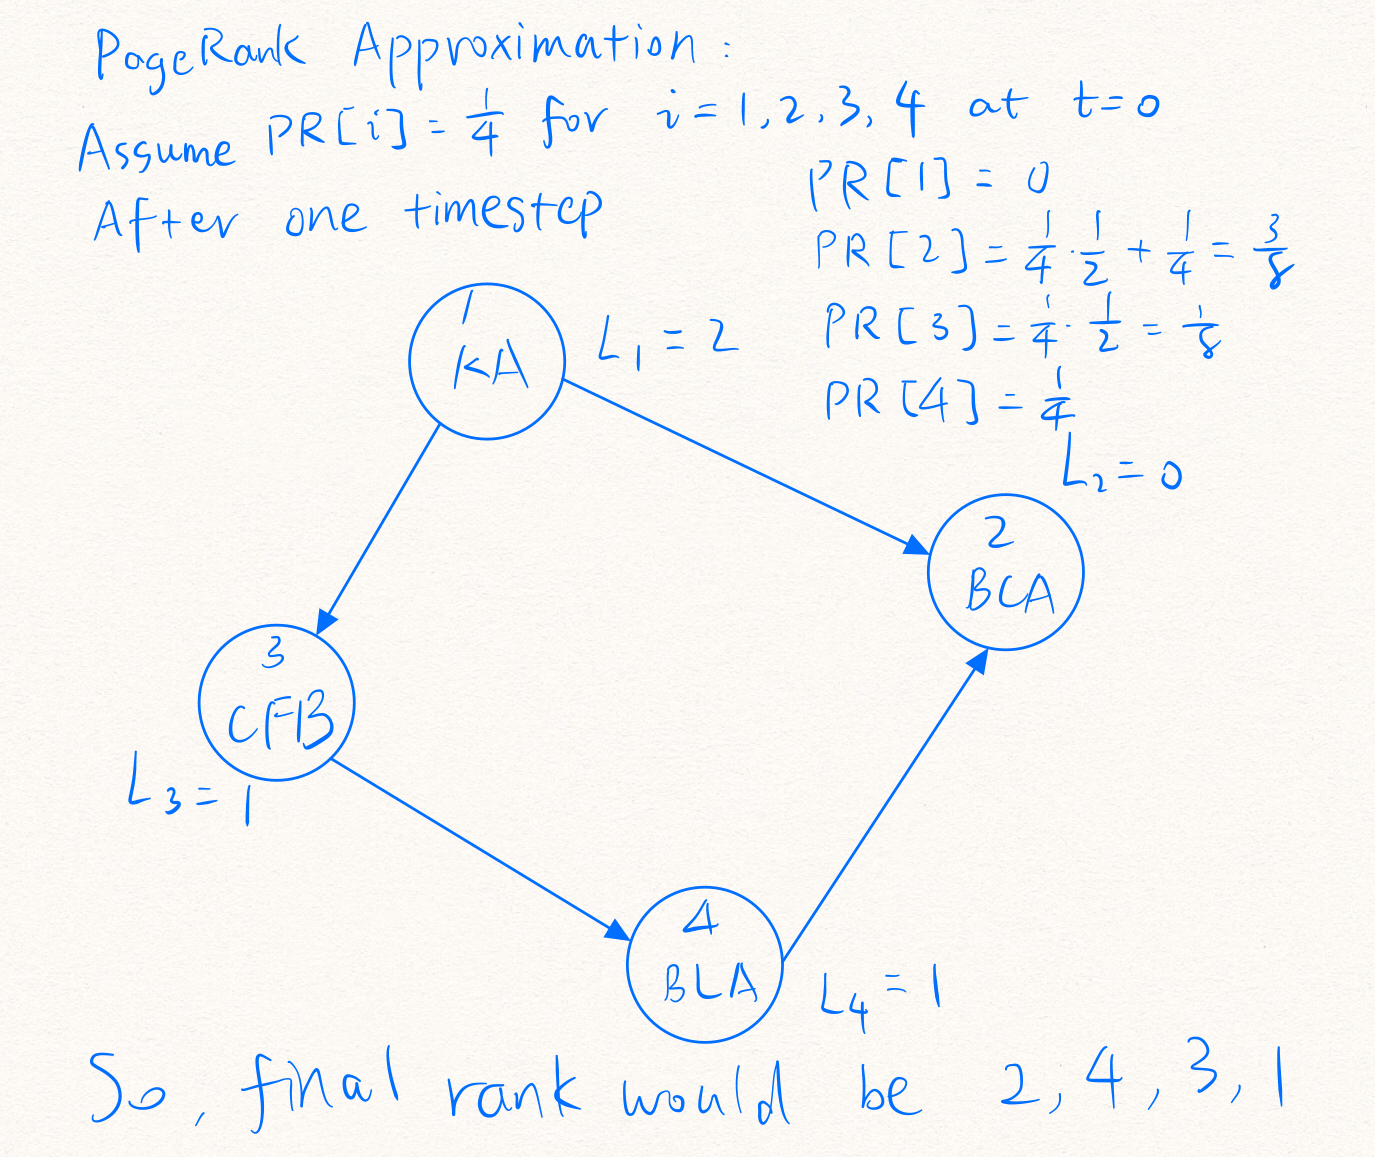 PageRank Approximation:
Assume PR[i] = 1/4 for i = 1, 2, 3, 4 at t=0
After one timestep
PR[1] = 0
PR[2] = 1/4 · 1/2 + 1/4 = 3/8
PR[3] = 1/4 · 1/2 = 1/8
PR[4] = 1/4
1
KA
L₁ = 2
L₂ = 0
2
BCA
3
CFB
L₃ = 1
4
BLA
L₄ = 1
So, final rank would be 2, 4, 3, 1